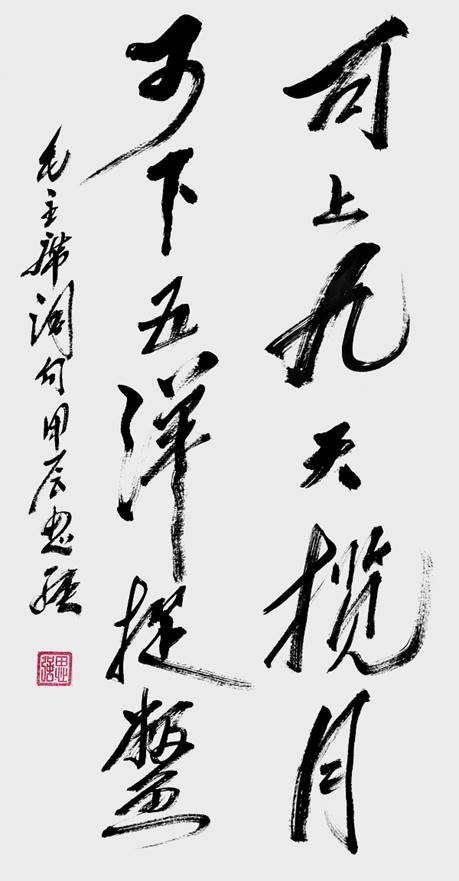 可上九天揽月
可下五洋捉鳖
毛主席词句甲辰思强
思强